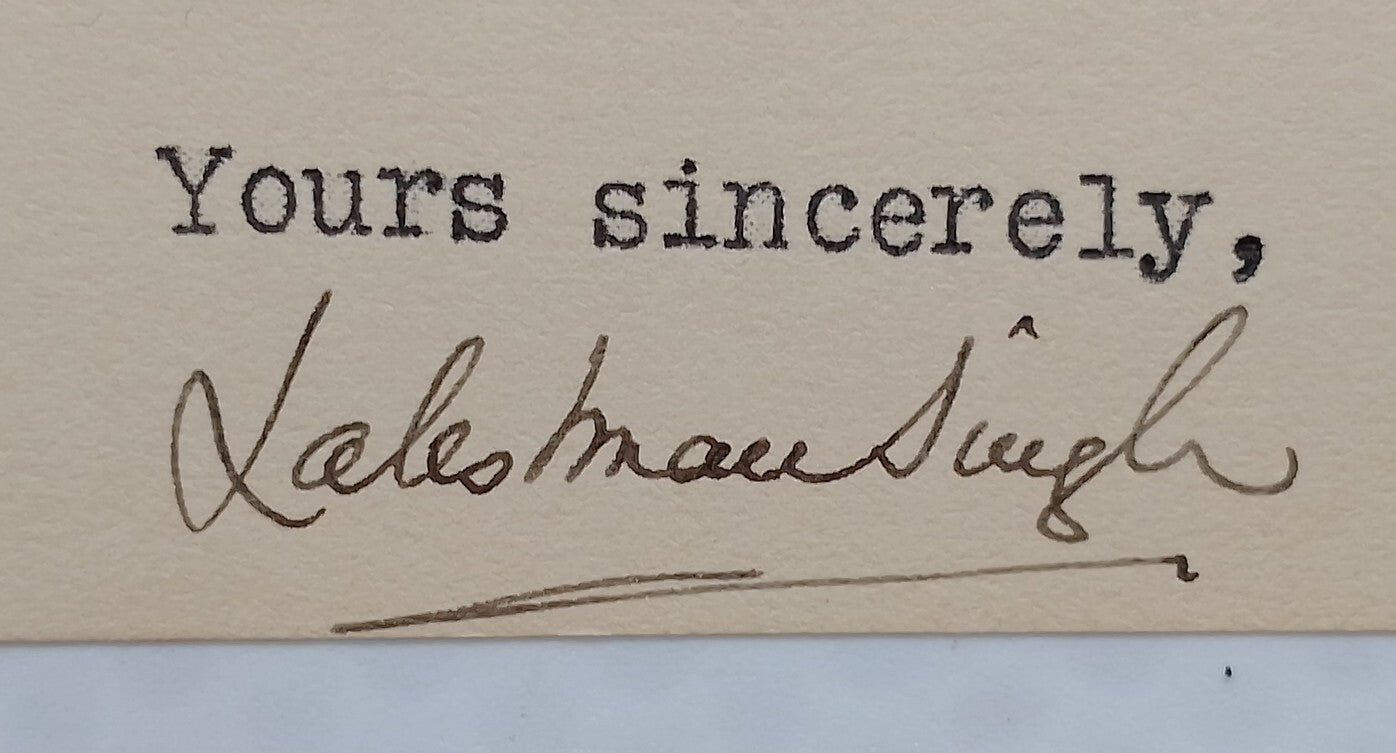 Yours sincerely,
Lakshman Singh